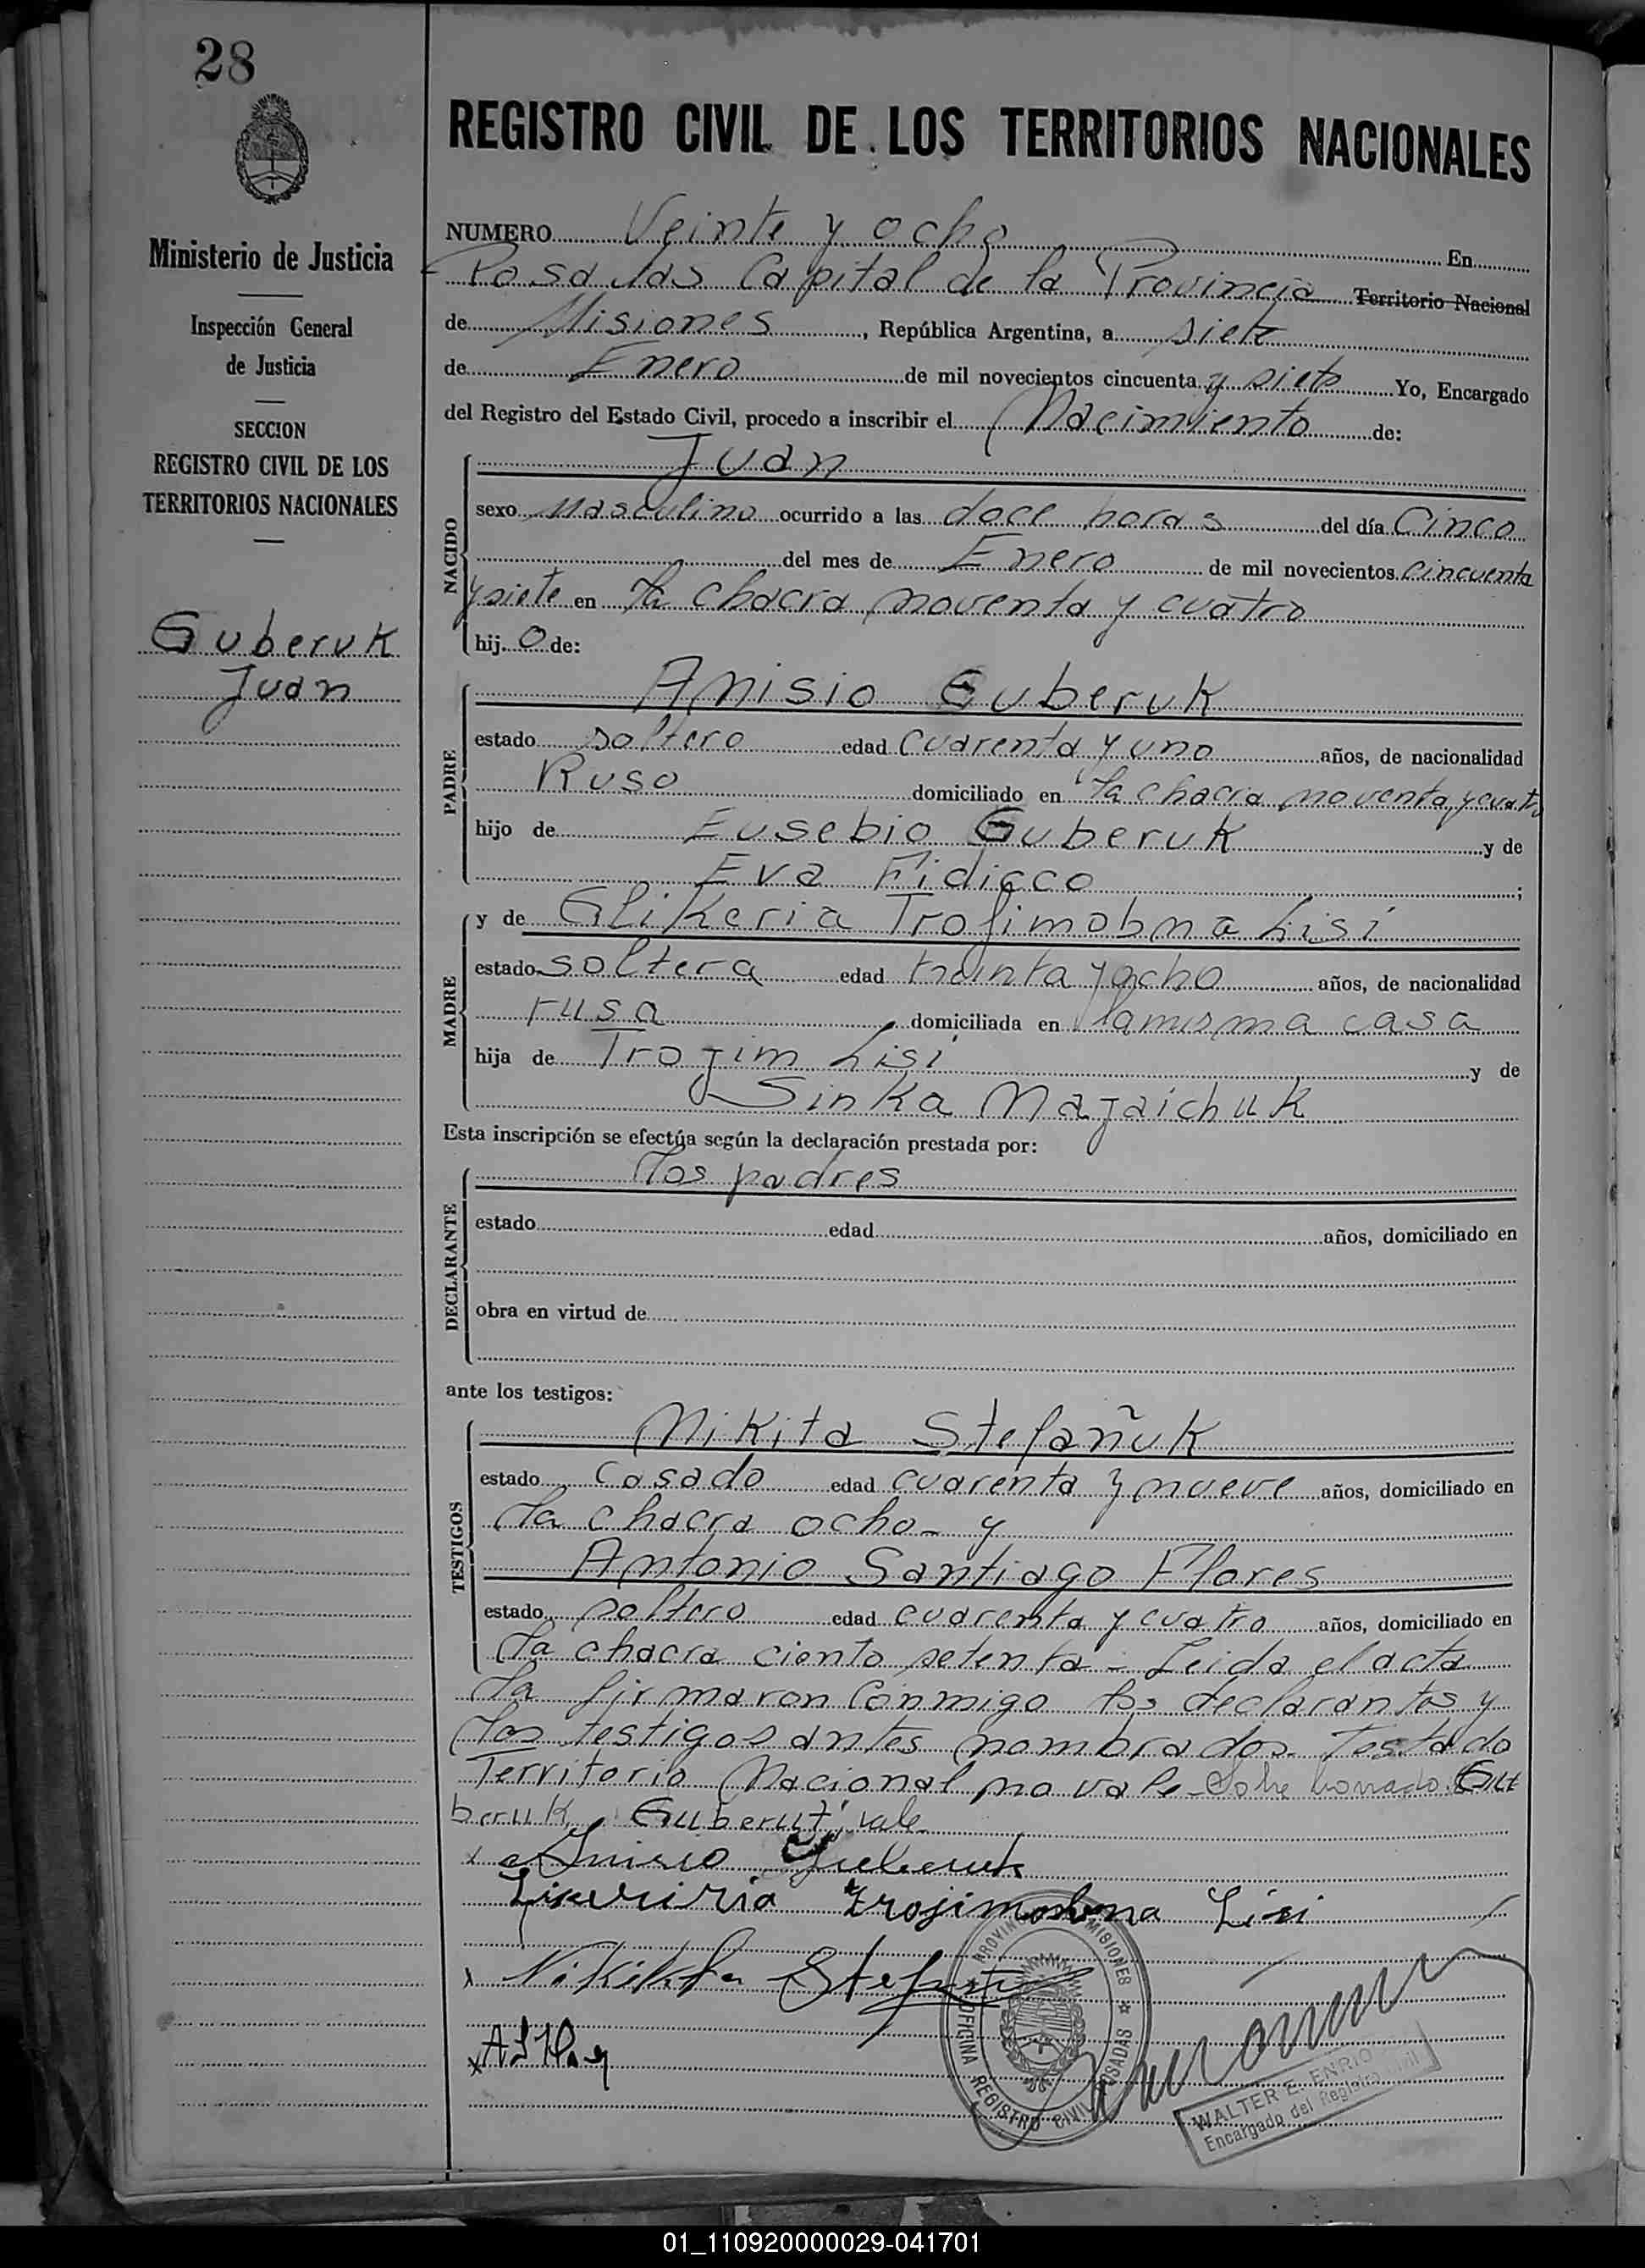 28
Ministerio de Justicia
Inspección General
de Justicia
SECCION
REGISTRO CIVIL DE LOS
TERRITORIOS NACIONALES
Guberuk
Juan
REGISTRO CIVIL DE LOS TERRITORIOS NACIONALES
NUMERO Veinte y ocho En
Posadas Capital de la Provincia Territorio Nacional
de Misiones, República Argentina, a siete
de Enero de mil novecientos cincuenta y siete Yo, Encargado
del Registro del Estado Civil, procedo a inscribir el Nacimiento de:
NACIDO
Juan
sexo Masculino ocurrido a las doce horas del día Cinco
del mes de Enero de mil novecientos cincuenta
y siete en la chacra noventa y cuatro
hij o de:
PADRE
Anisio Guberuk
estado soltero edad cuarenta y uno años, de nacionalidad
Ruso domiciliado en la chacra noventa y cuatro
hijo de Eusebio Guberuk y de
Eva Fidicco;
MADRE
y de Glikeria Trofimobna Lisi
estado soltera edad treinta y ocho años, de nacionalidad
rusa domiciliada en la misma casa
hija de Trojim Lisi y de
Sinka Majaichuk
Esta inscripción se efectúa según la declaración prestada por:
DECLARANTE
los padres
estado edad años, domiciliado en
obra en virtud de
ante los testigos:
TESTIGOS
Nikita Stefañuk
estado casado edad cuarenta y nueve años, domiciliado en
la chacra ocho - y
Antonio Santiago Flores
estado soltero edad cuarenta y cuatro años, domiciliado en
la chacra ciento setenta - Leida el acta
la firmaron conmigo los declarantes y
los testigos antes nombrados. Testado
Territorio Nacional no vale - Sobre borrado: Gu
beruk, Guberuk; vale
x Anisio Guberuk
Trojimobna Lisi
x Nikita
x
PROVINCIA MISIONES
OFICINA REGISTRO CIVIL POSADAS
WALTER E. ENRIQ
Encargado del Registro Civil
01_110920000029-041701